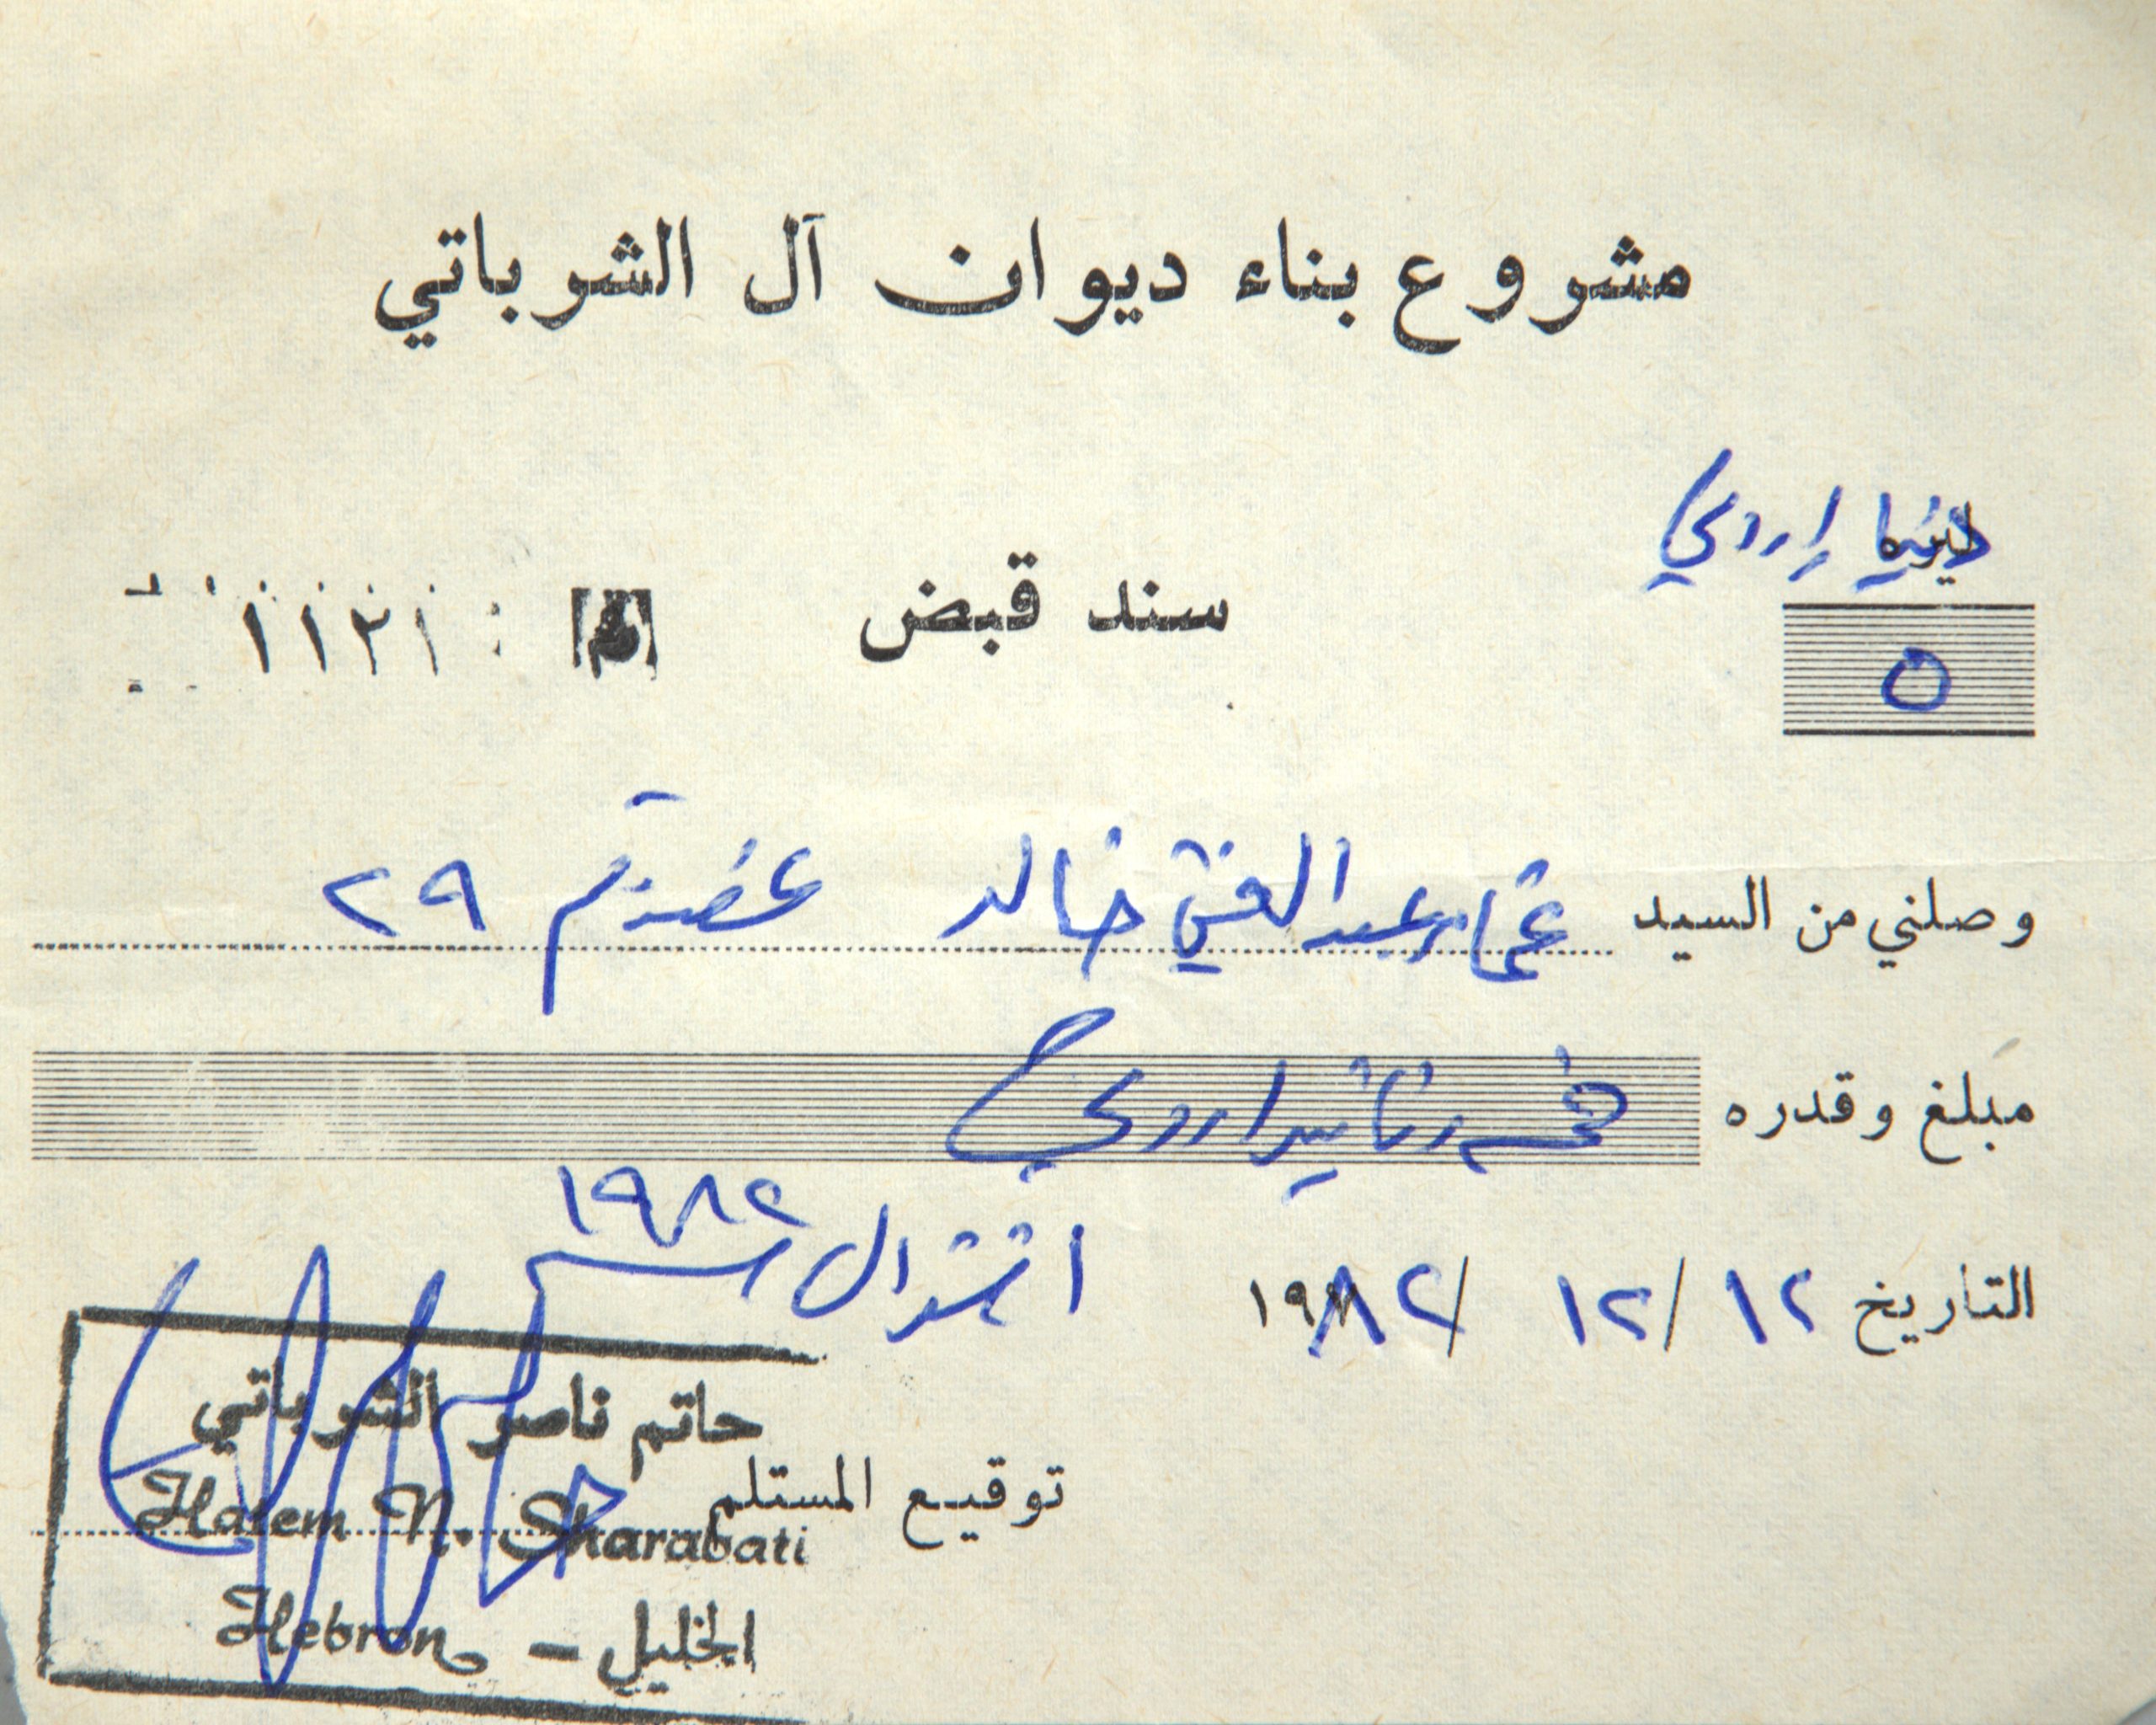 مشروع بناء ديوان آل الشرباتي
دينار اردني
سند قبض : ١١٢١
٥
وصلني من السيد عمار عبد الغني خالد عضو رقم ٢٩
مبلغ وقدره خمسة دنانير اردني
التاريخ ١٢ / ١٢ / ١٩٨٢ اشتراك ١٩٨٢
توقيع المستلم
حاتم ناصر الشرباتي
Hatem N. Sharabati
Hebron - الخليل